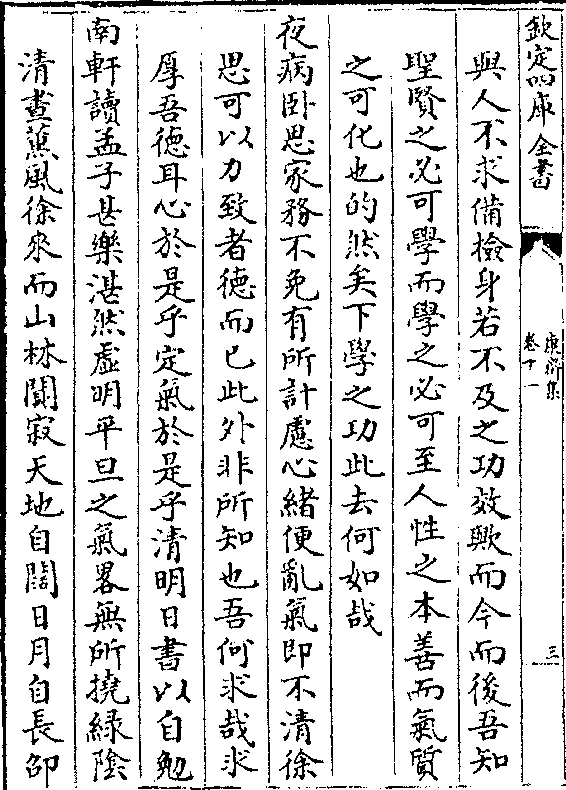 欽定四庫全書
康齋集
卷十一
三
與人不求備檢身若不及之功效歟而今而後吾知
聖賢之必可學而學之必可至人性之本善而氣質
之可化也的然矣下學之功此去何如哉
夜病卧思家務不免有所計慮心緒便亂氣即不清徐
思可以力致者徳而已此外非所知也吾何求哉求
厚吾徳耳心於是乎定氣於是乎清明日書以自勉
南軒讀孟子甚樂湛然虛明平旦之氣畧無所撓緑陰
清晝薫風徐來而山林闃寂天地自闊日月自長邵